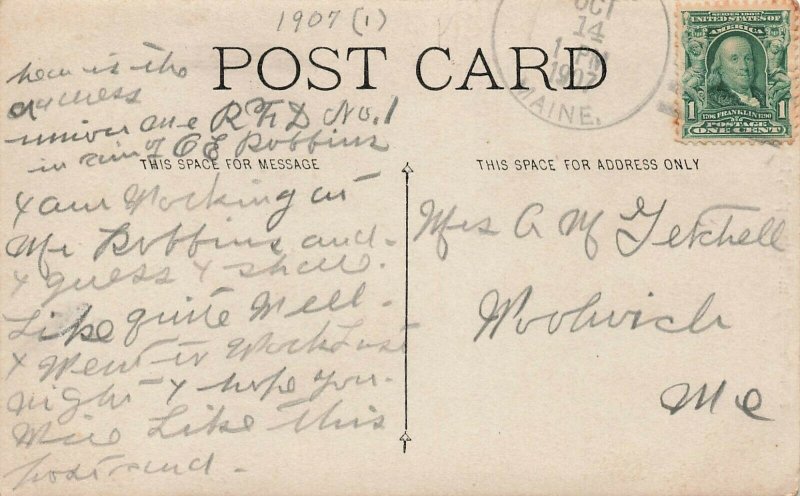 1907 (1)
POST CARD
OCT
14
1 PM
1907
MAINE.
SERIES 1902
UNITED STATES OF
AMERICA
1 1706 FRANKLIN 1790 1
POSTAGE
ONE CENT
hear is the
address
union Me R F D No. 1
in care of C E Robbins
THIS SPACE FOR MESSAGE
I am Working at
Mr Robbins and
I guess I shall
Like quite Well
I Went to Work Last
night I hope you
Will Like this
post card
THIS SPACE FOR ADDRESS ONLY
Mrs A M Getchell
Woolwich
Me